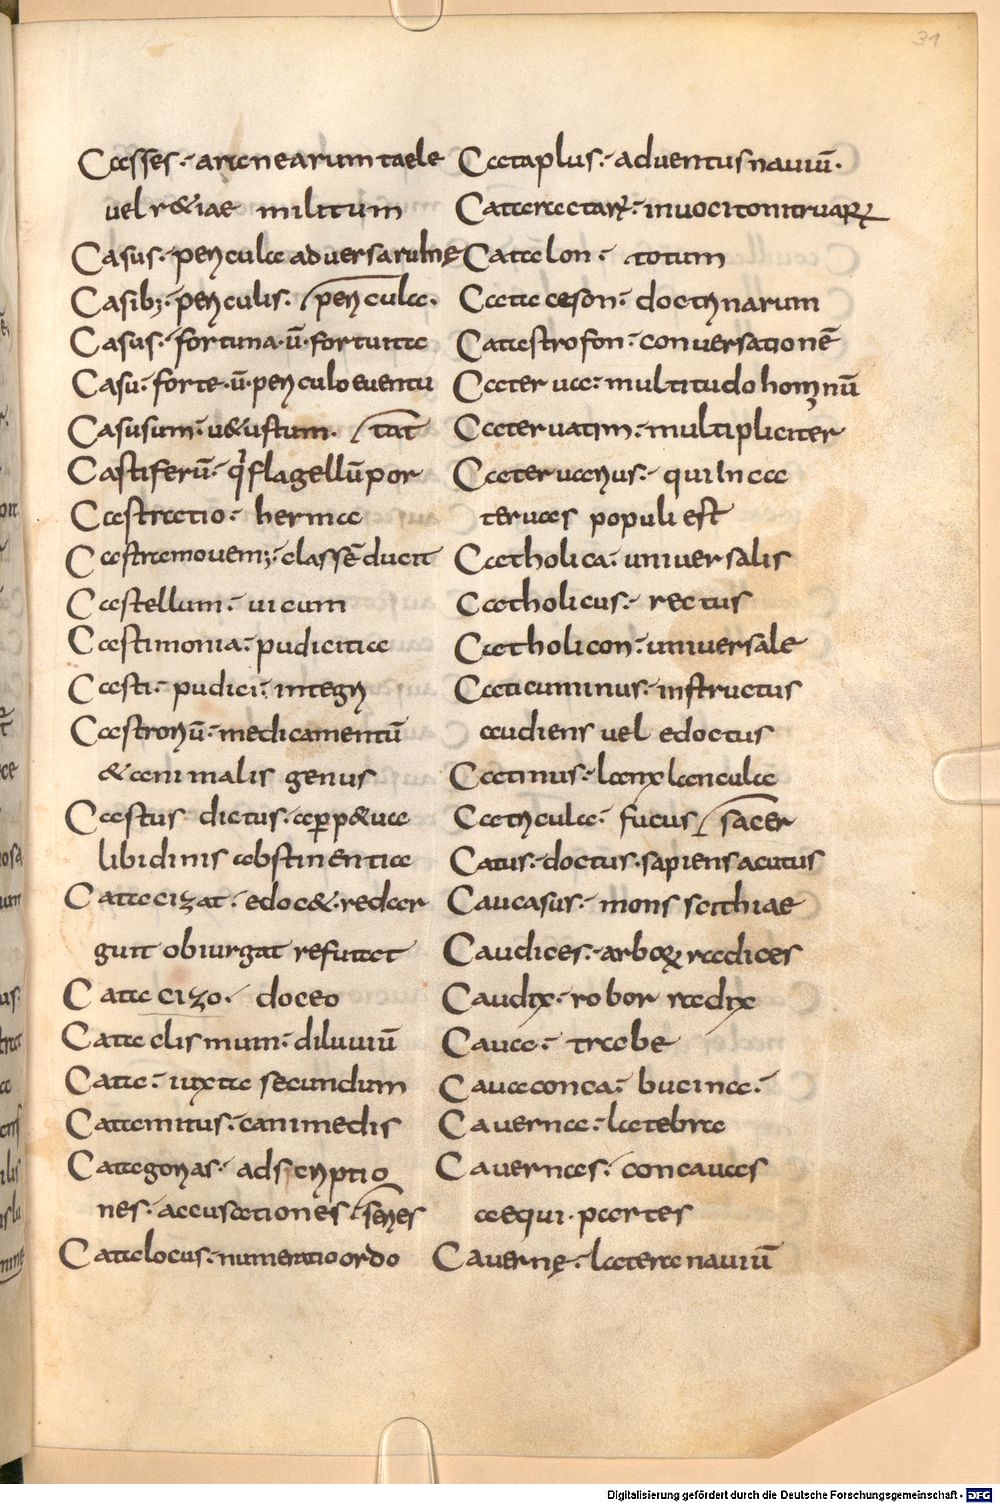 31
Casses·:· aranearum taele
uel r&iae militum
Casus·:· periculae aduersarumę
Casib;·:· periculis· periculae·
Casus·:· fortuna·ū·fortuitae
Casu·:· forte·ū·periculo euentu
Casusum·:· u&ustum· tat
Castiferū·:· flagellū por
Castratio·:· hermae
Castramouem;·:· classē ducit
Castellum·:· uicum
Castimonia·:· pudicitiae
Casti·:· pudici·:· integri
Castroriū·:· medicamentū
&animalis genus
Castus dictus·:· app&ua
libidinis abstinentiae
Catecizat·:· edoc&·redar
guit obiurgat refutat
Catecizo·:· doceo
Cataclismum·:· diluuiū
Cata·:· iuxta secundum
Catamitus·:· canimedis
Categorias·:· adscriptio
nes·:· accusationes·:· series
Catalocus·:· numeratio ordo
Cataplus·:· aduentus nauiū·
Cataractarꝝ·:· inuoci tonitruarꝝ
Catalon·:· totum
Cataceson·:· doctrinarum
Catastrofon·:· conuersationē
Caterua·:· multitudo hominū
Cateruatim·:· multipliciter
Cateruarius·:· qui In ca
teruas populi est
Catholica·:· uniuersalis
Catholicus·:· rectus
Catholicon·:· uniuersale
Caticuminus·:· instructus
audiens uel edoctus
Catinus·:· lanx lancula
Catricula·:· fucus sacer
Catus·:· doctus·sapiens acutus
Caucasus·:· mons scithiae
Caudices·:· arboꝝ radices
Caudix·:· robor radix
Caua·:· trabe
Cauaconca·:· bucina·:·
Cauerna·:· latebra
Cauernas·:· concauas
aequi·partes
Cauernę·:· latera nauiū
Digitalisierung gefördert durch die Deutsche Forschungsgemeinschaft - DFG